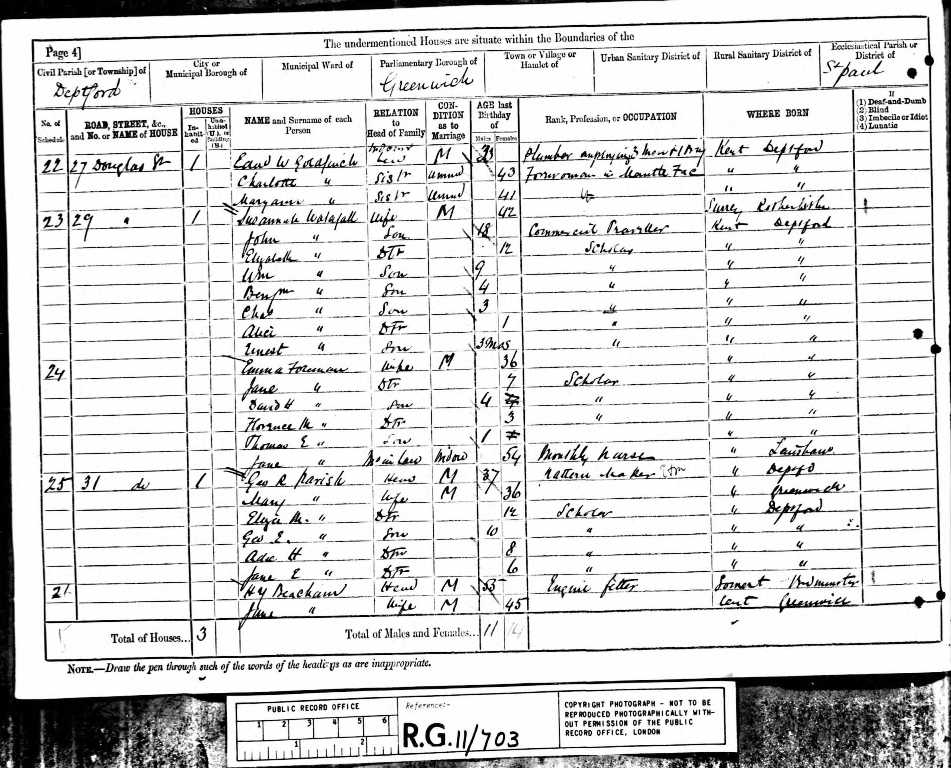 Page 4]
The undermentioned Houses are situate within the Boundaries of the
Civil Parish [or Township] of
Deptford
City or Municipal Borough of
Municipal Ward of
Parliamentary Borough of
Greenwich
Town or Village or Hamlet of
Urban Sanitary District of
Rural Sanitary District of
Ecclesiastical Parish or District of
St Paul
No. of Schedule
ROAD, STREET, &c., and No. or NAME of HOUSE
HOUSES
Inhabited
NAME and Surname of each Person
RELATION to Head of Family
CONDITION as to Marriage
AGE last Birthday of
Males Females
Rank, Profession, or OCCUPATION
WHERE BORN
If
(1) Deaf-and-Dumb
(2) Blind
(3) Imbecile or Idiot
(4) Lunatic
22 27 Douglas St 1 Edwd W Goldfinch M 33 Plumber employing Kent Deptford
Charlotte " Sistr Unmd 43 Forewoman in Mantle Fac " "
Maryann " Sistr Unmd 41 " "
23 29 " 1 Susannah Wife M 42 Surrey Rotherhithe
John " Son 18 Commercial Traveller Kent Deptford
Elizabeth " Dtr 12 Scholar " "
Wm " Son 9 " " "
Benjm " Son 4 " " "
Chas " Son 3 " " "
Alice " Dtr 1 " " "
Ernest " Son 3 mos " " "
24 Emma Foreman Wife M 36 " "
Jane " Dtr 7 Scholar " "
David H " Son 4 " " "
Florence M " Dtr 3 " " "
Thomas E " Son 1 " "
Jane " Widow 54 Monthly Nurse "
25 31 do 1 Geo R Parish Head M 37 Pattern Maker " Deptfd
Mary " Wife M 36 " Greenwich
Eliza M. " Dtr 12 Scholar " Deptford
Geo E. " Son 10 " " "
Ada H " Dtr 8 " " "
Jane E " Dtr 6 " " "
Hy Beacham Head M 55 Engine fitter Somerset
Jane " Wife M 45 Kent Greenwich
Total of Houses... 3
Total of Males and Females... 11 14
NOTE.—Draw the pen through such of the words of the headings as are inappropriate.
PUBLIC RECORD OFFICE
1 2 3 4 5 6
1 2
Reference:-
R.G. 11/703
COPYRIGHT PHOTOGRAPH - NOT TO BE
REPRODUCED PHOTOGRAPHICALLY WITH-
OUT PERMISSION OF THE PUBLIC
RECORD OFFICE, LONDON